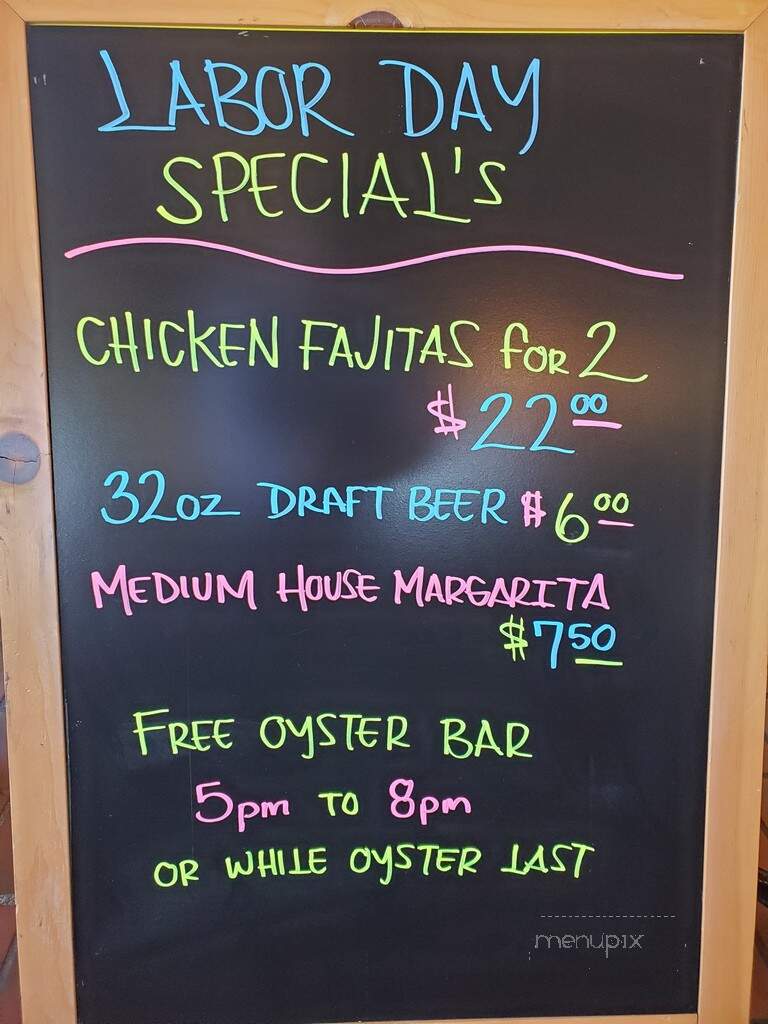 LABOR DAY
SPECIAL'S
CHICKEN FAJITAS FOR 2
$22.00
32oz DRAFT BEER $6.00
MEDIUM HOUSE MARGARITA
$7.50
FREE OYSTER BAR
5pm TO 8pm
OR WHILE OYSTER LAST
menupix